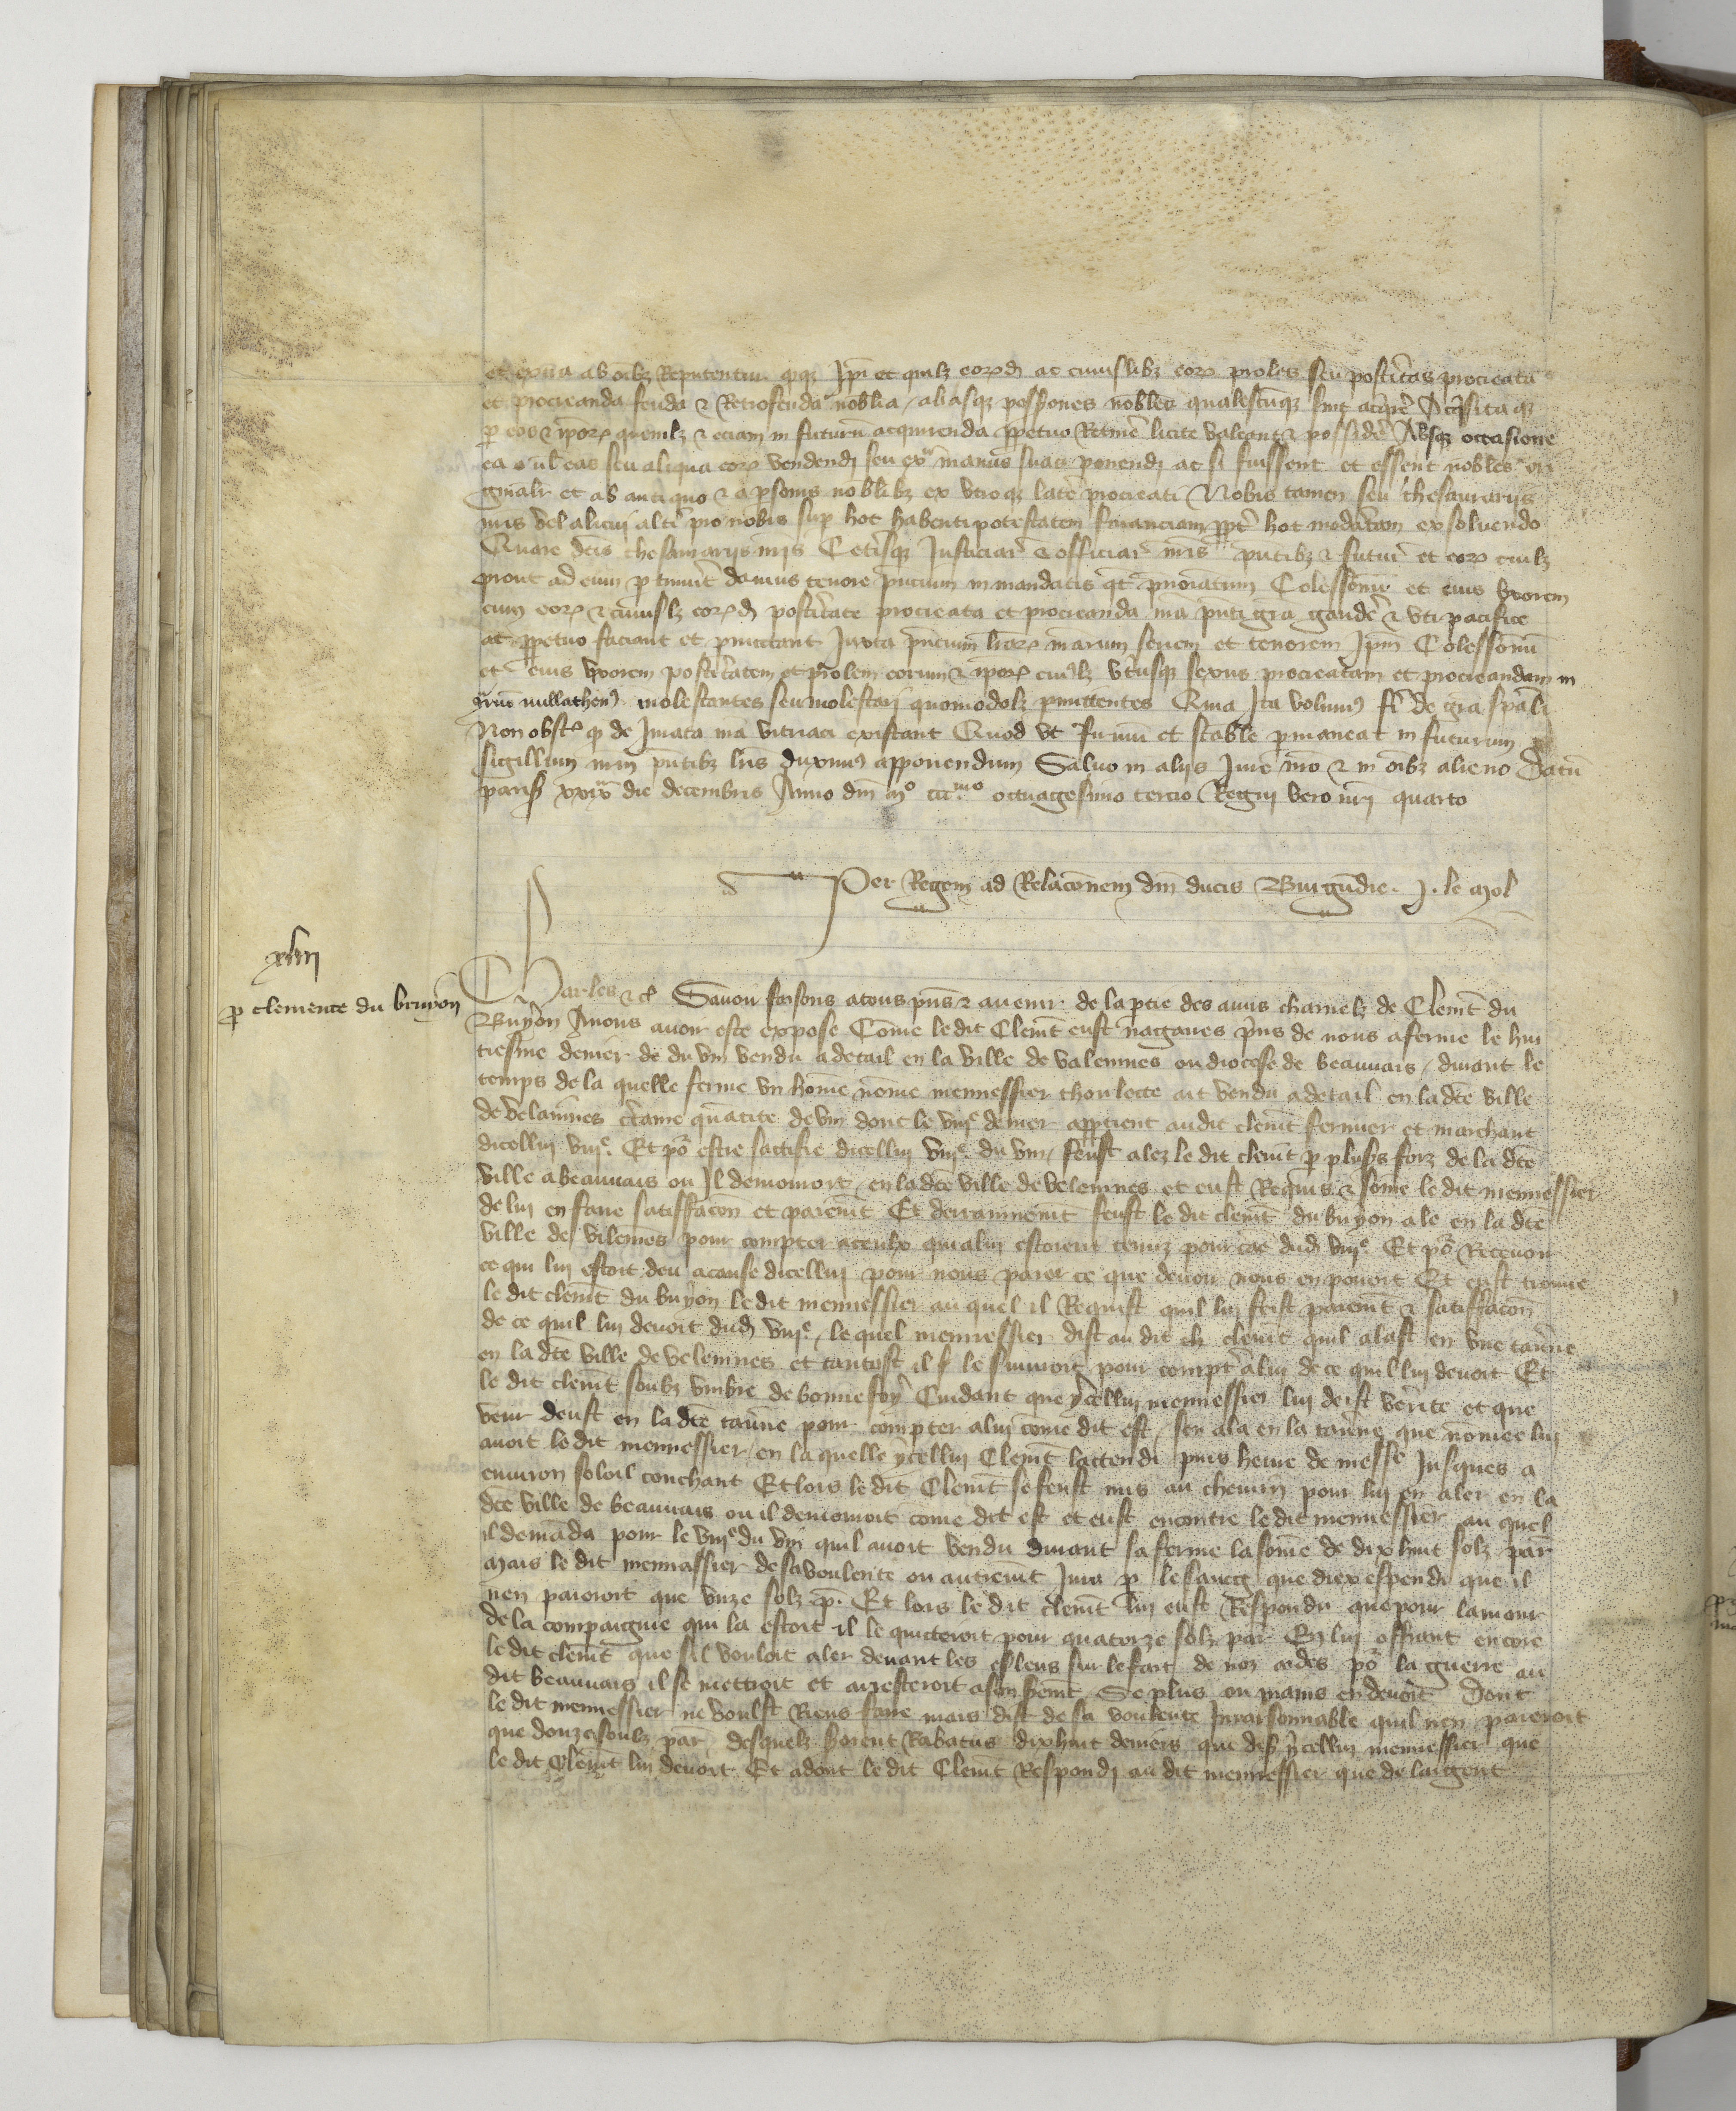 et extra ab oībz Reputentur qz Ipi et quilz eorꝝdē ac cuiuslibz eorꝝ proles seu postitas procreata
et procreanda feuda ⁊ Retrofeuda nobilia aliasqz possones nobiles qualescūqz sint acquire Acqisita qz
p eos ⁊ ipoꝝ quemlz ⁊ eciam in futurū acquirenda ppetuo Retinē licite valeant ⁊ possidē Absqz occasione
ea vl eas seu aliqua eorꝝ vendendi seu ex manus suas ponendi ac si fuissent et essent nobiles ori
ginalr et ab antiquo ⁊ a psonis nobilibz ex vtroqz late procreati Nobis tamen seu thesaurarijs
nris vel alicui alti pro nobis sup hoc habenti potestatem financiam ppt hoc modatam exsoluendo
Quare dcis thesaurarijs nris Cetisqz Justiciar ⁊ officiar nris pntibz ⁊ futur et eorꝝ cuilz
prout ad eum ptinuit damus tenore pncium in mandatis qt pnoiatum Colessonū et eius vxorem
cum eorꝝ ⁊ cuiuslz eorꝝdē postitate procreata et procreanda nra pnti gra gaudē ⁊ vti pacifice
ac ppetuo faciant et pmittant Juxta pncium lrarꝝ nrarum seriem et tenorem Ipm Colessonū
et eius vxorem postitatem et prolem eorum ⁊ ipoꝝ cuilz vtiusqz sexus procreatam et procreandam in
ꝯriū nullathenꝰ molestantes seu molestari quomodolz pmittentes Quia Ita volumꝰ fi de gra spali
Non obst qz de Jurata nra vitriaci existant Quod vt firmū et stabile pmaneat in futurum
sigillum nrm pntibz lris duximꝰ apponendum Saluo in alijs Jure nro ⁊ in oībz alieno Datū
parisꝰ xxix die decembris Anno dm mº cccmo octuagesimo tercio Regni vero nri quarto
Per Regem ad Relacōnem dm ducis Burgūdie. J. le mol
xliiij
p clemence du bruyōn
Charles ⁊c Sauoir faisons a tous pns ⁊ auenir de la ptie des amis charnelz de Clemt du
Buyon Anous auoir este expose Cōme le dit Clemt eust nagaires pris de nous a ferme le hui
tiesme denier de du vin vendu a detail en la ville de valennes ou diocese de beauuais, durant le
temps de la quelle ferme vn hōme nōme menessier thoulecte ait vendu a detail en la dce ville
de velannes ctaine quātite de vin dont le viije denier appient au dit clemt fermier et marchant
dicellui viije. Et po estre satisfie dicellui viije du vin feust alez le dit clemt p plusrs foiz de la dce
ville a beauuais ou Il demouroit en la dce ville de velennes et eust Requis ⁊ some le dit menessier
de lui en faire satiffacon et paiemt Et derrainnemt feust le dit clemt du buyon ale en la dce
ville de vilennes pour compter a ceulx qui a lui estoient tenuz pour cāe dud viije Et po Receuoir
ce qui lui estoit deu a cause dicellui pour nous paier ce que deuoir nous en pouoit Et eust trouue
le dit clemt du buyon le dit menessier au quel il Requist quil lui feist paiemt ⁊ satiffacon
de ce quil lui deuoit dud viije, le quel menessier dist au dit ch clemt quil alast en vne tauerne
en la dce ville de velennes et tantost il f le suiuroit pour compt a lui de ce quil lui deuoit Et
le dit clemt soubz vmbre de bonne foy Cuidant que ycellui menessier lui deist verite et que
venir deust en la dce tauerne pour compter a lui come dit est, sen ala en la tauerne que nomee lui
auoit le dit menessier en la quelle ycellui Clemt lattendi puis heure de messe Jusques a
enuiron soloil couchant Et lors le dit Clemt se feust mis au chemin pour lui en aler en la
dce ville de beauuais ou il demouroit come dit est et eust encontre le dit menessier au quel
il demāda pour le viije du vin quil auoit vendu durant sa ferme la some de dix huit solz par
Mais le dit menassier de sa voulente ou autremt Jura p le sancg que diex espendi que il
nen paieroit que vnze solz p. Et lors le dit clemt lui eust Respondu que pour lamour
de la compaignie qui la estoit il le quicteroit pour quatorze solz par En lui offrant encore
le dit clemt que sil vouloit aler deuant les esleus sur le fait de noz aides po la guerre au
dit beauuais il se mettroit et arresteroit a son semt Se plus ou mains en deuoit Dont
le dit menessier ne voulst Riens faire mais dist de sa voulente Inraisonnable quil nen paieroit
que douze soulz par desquelz seroient Rabatus dixhuit deniers que dist ycellui menessier que
le dit Clemt lui deuoit Et adont le dit Clemt Respondi au dit menessier que de largent